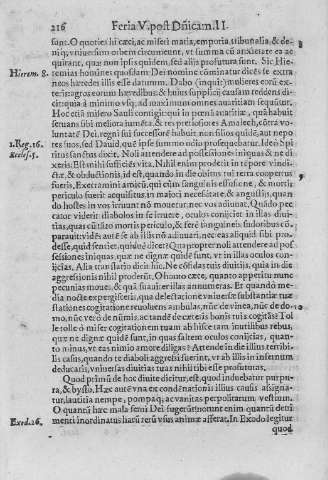 216 Feria V. post Dñicam. II.
sunt. O quoties hi cæci, ac miseri maria, emporia, tribunalia & de-
niq; vniuersum obem circumeunt, vt summa cū anxietate ea ac-
quirant, quæ non ipsis quidem, sed alijs profutura sunt. Sic Hie-
Hierem. 8. remias homines quosdam Dei nomine cominatur dicēs se extra-
neos hæredes illis esse daturum. Dabo (inquit) mulieres eorū ex-
teris: agros eorum hæredibus: & huius supplicij causam reddens di-
cit: quia à minimo vsq; ad maximum omnes auaritiam sequūtur.
Hoc etiā misero Sauli contigit: qui in pœnā auaritiæ, quia habuit
seruatū sibi meliora iumēta, & res pretiosiores Amalech, cōtra vo-
luntatē Dei, regni sui successorē habuit non filios quidē, aut nepo
1. Reg. 16. tes suos, sed Dauid, quē ipse summo odio prosequebatur. Ideo Spi-
Eccles. 5. ritus sanctus dixit, Noli attendere ad possessiones iniquas & ne di-
xeris. Est mihi sufficiēs vita. Nihil enim proderit in tēpore vindi-
ctæ, & obductionis, id est, quando in die obitus tui terra coopertus
fueris, Exettramini amici, qui eliām sanguinis effusione, & morti;
periculo fuerit acquisitus: in maiori necessitate, & angustijs, quan
do hostes in vos irruunt nō mouetur, nec vos adiuuat, Quādo pec
cator viderit diabolos in se irruere, oculos conijciet in illas diui-
tias, quas cū tāto mortis periculo, & ferè sanguineis sudoribus cō-
parauit: vidēs autē se ab illis nō adiuuari, nec eas aliquid sibi pro-
desse, quid sentiet, quidūē dicet? Quapropter noli attendere ad pos
sessiones iniquas, quæ ne dignæ quidē sunt, vt in illas oculos con-
ijcias. Alia translatio dicit hic. Ne cōfidas tuis diuitijs, quia in die
aggressionis nihil proderūt. O homo cæce, quanto appetitu nunc
pecunias moues, & quā suauiter illas annumeras. Et quandò me-
dia nocte expergisceris, qua delectatione vniuersæ substantiæ tuæ
stationes cogitatione reuoluens ambulas, nūc de vinea, nūc de do-
mo, nūc verò de nūmis, ac tandē de cæteris bonis tuis cogitās? Tol
le tolle ò miser cogitationem tuam ab hisce tam inutilibus rebus,
quæ ne dignæ quidē sunt, in quas saltem oculos conijcias, quan-
to minus, vt eas nimio amore diligas? Attende in die illius terribi-
lis casus, quando te diaboli aggressi fuerint, vt ab illis in infernum
deducaris, vniuersas diuitias tuas nihil tibi esse profuturas.
Quod primū de hoc diuite dicitur, est, quod induebatur purpu-
ra, & bysso. Hæc autē vna ex condēnationis illius causis assigna-
tur, lautitia nempe, pompaq; ac vanitas perpolitarum vestium.
O quantū hæc mala semi Dei sugerūt; norunt enim quantū detri
Exod. 26. menti inordinatus harū rerū vsus animæ afferat. In Exodo legitur
quod